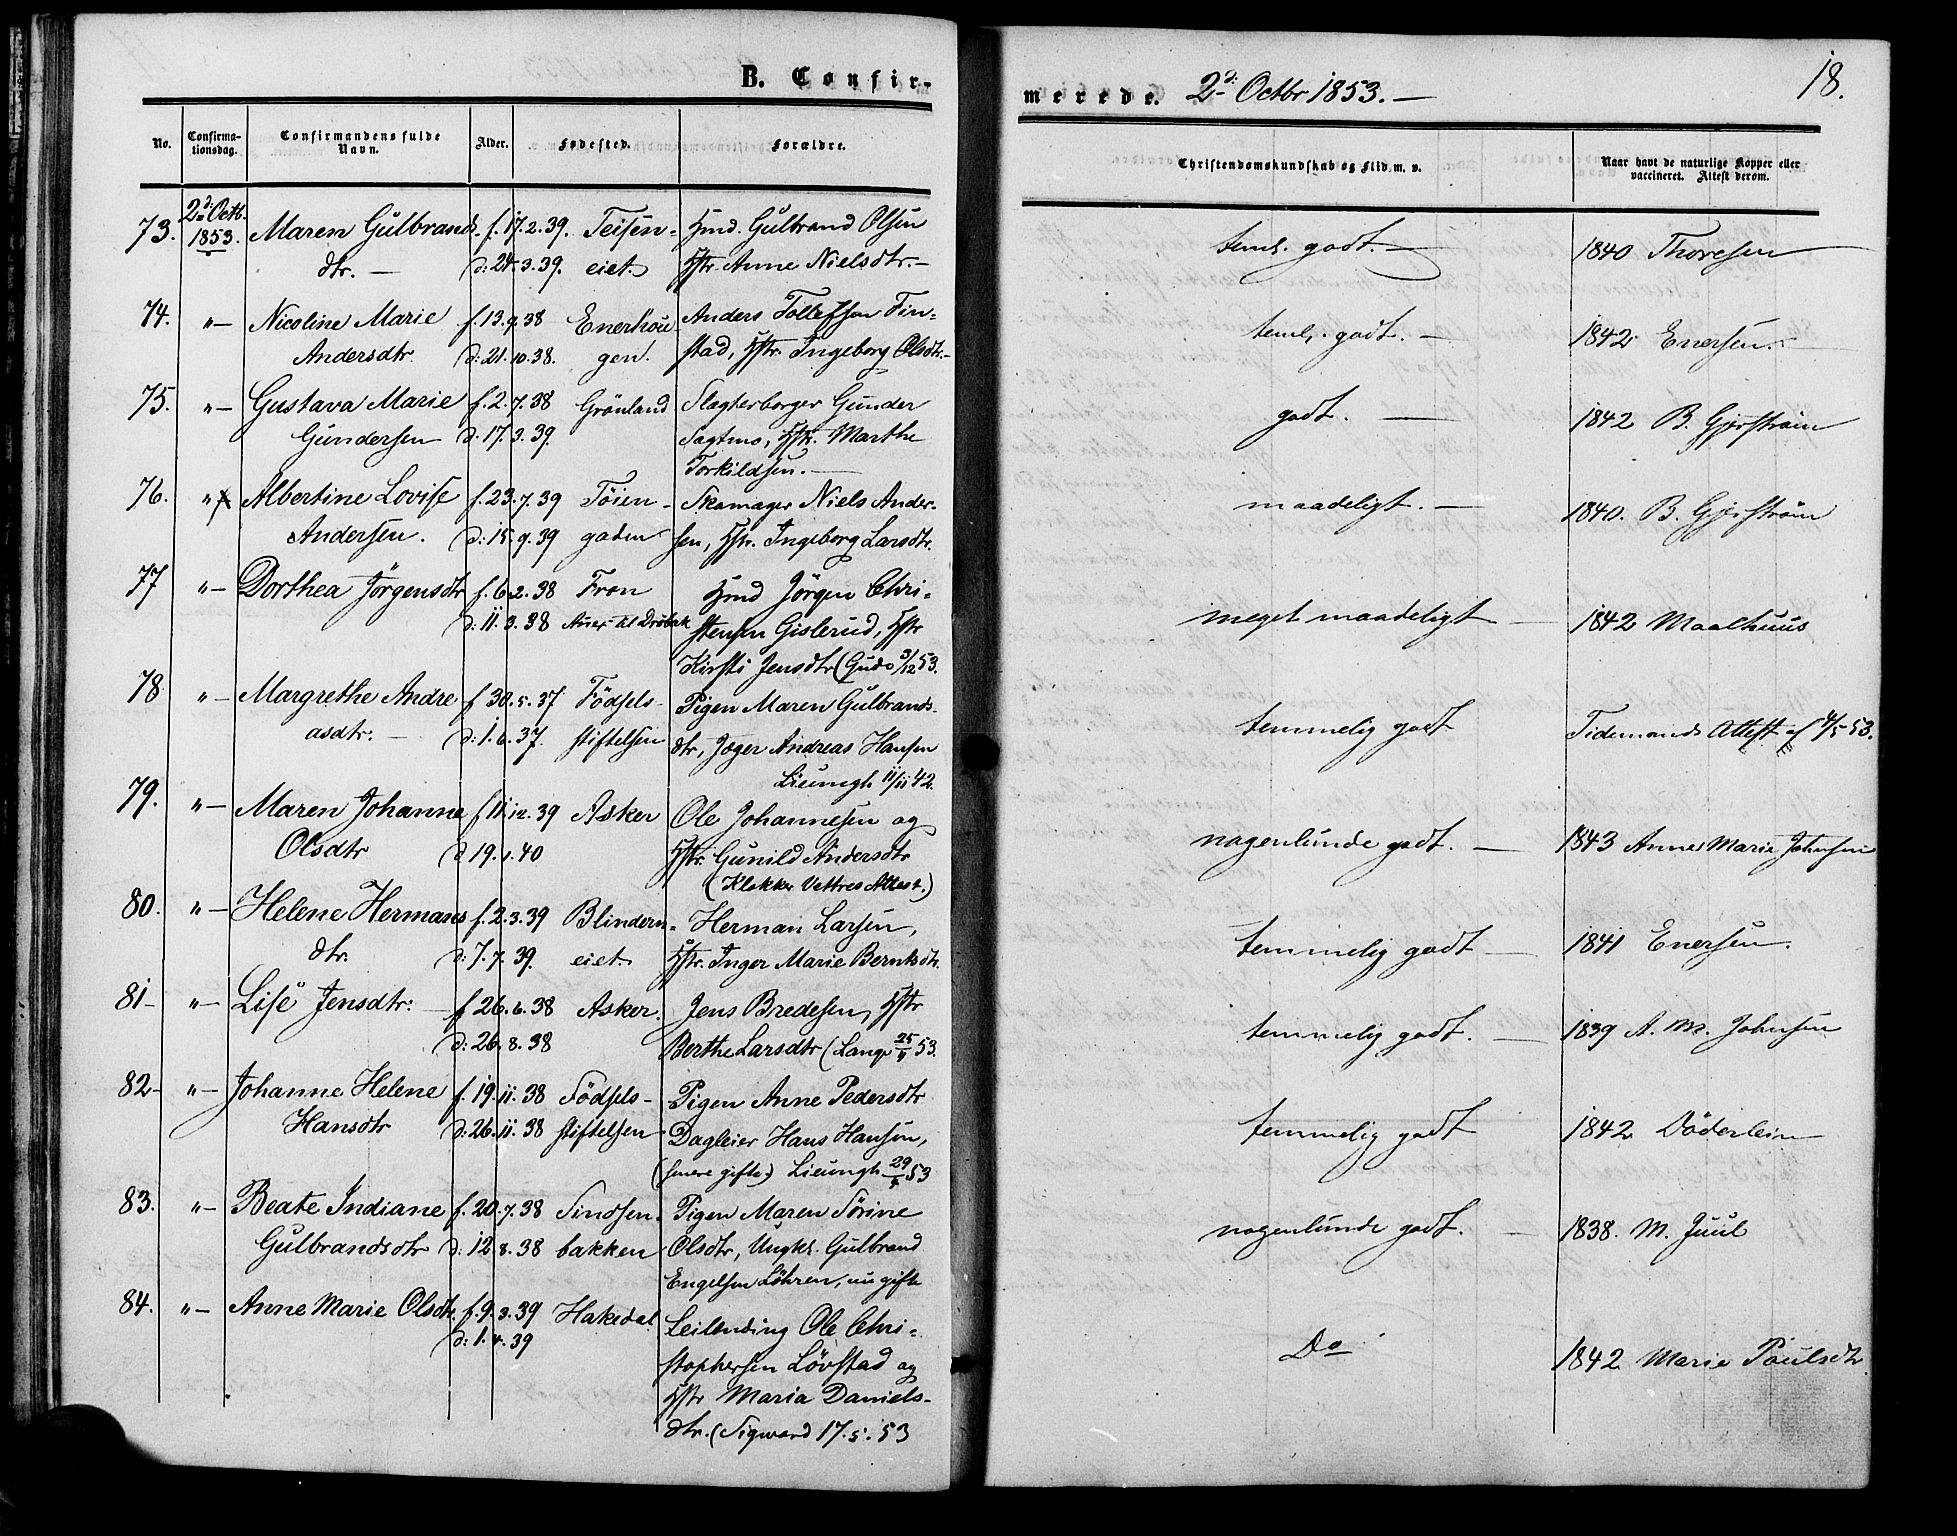 B. Confir-
merede. 2d: Octbr 1853. —
18.
No. Confirma-tionsdag. Confirmandens fulde Navn. Alder. Fødested. Forældre. Christendomskundskab og Flid m. v. Naar havt de naturlige Kopper eller vaccineret. Attest derom.
73. 2d: Octb. Maren Gulbrands- f. 17.2.39. Teisen- Hmd. Gulbrand Olsen teml. godt. — 1840 Thoresen
1853. dtr. — d: 24.3.39. eiet. Hstr. Anne Nielsdtr. —
74. "— Nicoline Marie f. 13.9.38 Enerhou- Anders Tollefsen Fin- teml. godt. — 1842 Enersen.
Andersdtr. d: 21.10.38. gen. stad, Hstr. Ingeborg Olsdtr. —
75. "— Gustava Marie f. 2.7.38 Grönland Slagterborger Gunder godt. — 1842 B. Gjerström
Gundersen d: 17.3.39. Sagtmo, Hstr. Marthe
Torkildsen. —
76. " Albertine Lovise f. 23.7.39 Töien- Skomager Niels Ander- maadeligt. — 1840. B. Gjerström
Andersen. d: 15.9.39 gaden sen, Hstr. Ingeborg Larsdtr.
77 "— Dorthea Jörgensdtr f. 6.2.38 Fron Hmd Jörgen Chri- meget maadeligt — 1842 Maalhuus
d: 11.3.38 Aner til Dröbak stensen Gislerud, Hstr
Kirsti Jensdtr (Gude 3/12 53.
78. "— Margrethe Andre f 30.5.37 Födsels- Pigen Maren Gulbrands- temmelig godt Tidemands Attest af 4/5 53.
asdtr. — d: 1.6.37. stiftelsen dtr, Jæger Andreas Hansen
Lieungh 11/11 42.
79. "— Maren Johanne f 11.12.39 Asker Ole Johannesen og nogenlunde godt. — 1843 Anne Marie Johnsen
Olsdtr d 19.1.40 Hstr. Gunild Andersdtr
(Klokker Vettres Attest.)
80. "— Helene Hermans f. 2.3.39 Blindern- Herman Larsen, temmelig godt — 1841 Enersen.
dtr. d: 7.7.39. eiet. Hstr. Inger Marie Berntsdtr.
81- "— Lise Jensdtr: — f 26.6.38 Asker. Jens Bredesen, Hstr temmelig godt. — 1839 A. M. Johnsen
d: 26.8.38 Berthe Larsdtr (Lange 25/9 53.
82- "— Johanne Helene f. 19.11.38 Födsels- Pigen Anne Pedersdtr temmelig godt 1842 Döderlein
Hansdtr d: 26.11.38 stiftelsen Dagleier Hans Hansen,
(senere gifte) Lieungh 29/9 53
83. "— Beate Indiane f. 20.7.38 Sinsen- Pigen Maren Sörine nogenlunde godt. — 1838. M. Juul
Gulbrandsdtr d: 12.8.38 bakken Olsdtr, Ungkl. Gulbrand
Engelsen Löhren, nu gifte
84. "— Anne Marie Olsdtr. f. 9.3.39 Hakedal Leilending Ole Chri- Do 1842 Marie Paulsdtr
d: 1.4.39 stophersen Lövstad og
Hstr Maria Daniels-
dtr. (Sigward 17.5.53